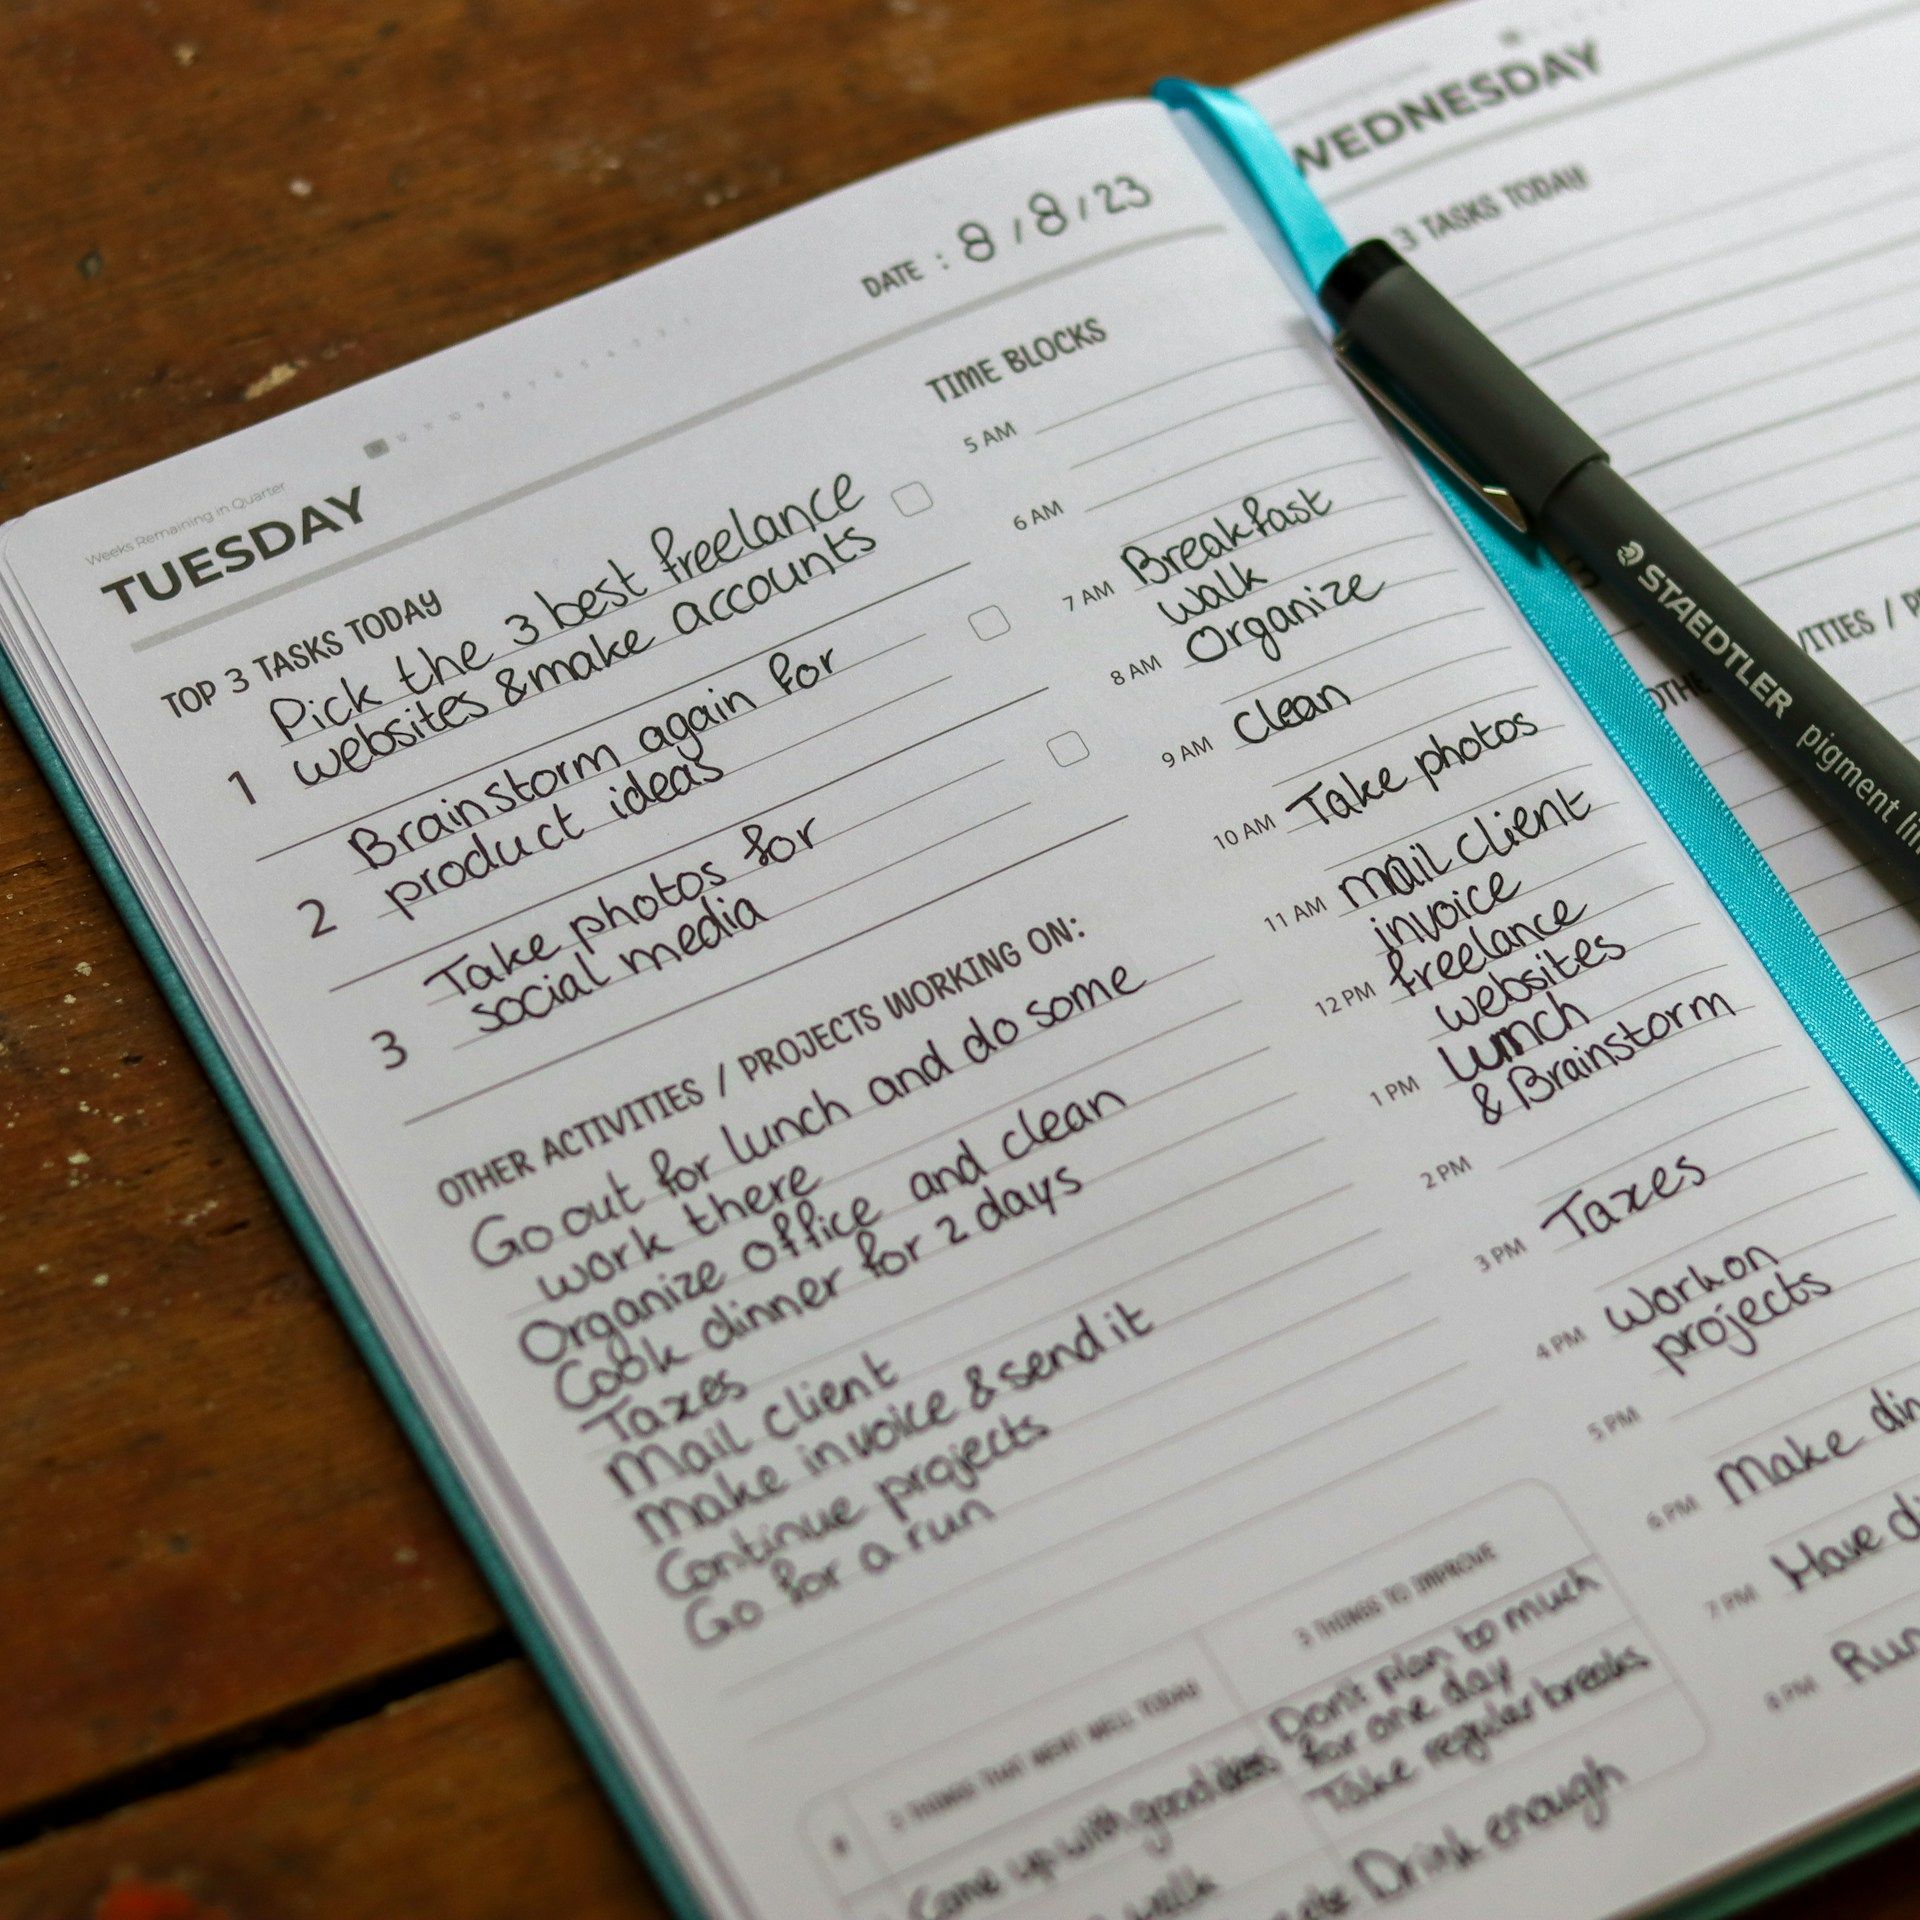 Weeks Remaining in Quarter
TUESDAY
DATE : 8 / 8 / 23
TOP 3 TASKS TODAY
1
Pick the 3 best freelance
websites & make accounts
2
Brainstorm again for
product ideas
3
Take photos for
social media
OTHER ACTIVITIES / PROJECTS WORKING ON:
Go out for lunch and do some
work there
Organize office and clean
Cook dinner for 2 days
Taxes
Mail client
Make invoice & send it
Continue projects
Go for a run
TIME BLOCKS
5 AM
6 AM
7 AM Breakfast
walk
8 AM Organize
9 AM Clean
10 AM Take photos
11 AM mail client
invoice
12 PM freelance
websites
lunch
1 PM & Brainstorm
2 PM
3 PM Taxes
4 PM Work on
projects
5 PM
6 PM Make din
7 PM Have di
8 PM Run
3 THINGS THAT WENT WELL TODAY
Come up with good ideas
walk
3 THINGS TO IMPROVE
Don't plan to much
for one day
Take regular breaks
Drink enough
WEDNESDAY
3 TASKS TODAY
OTHE
VITIES / P
STAEDTLER pigment lin